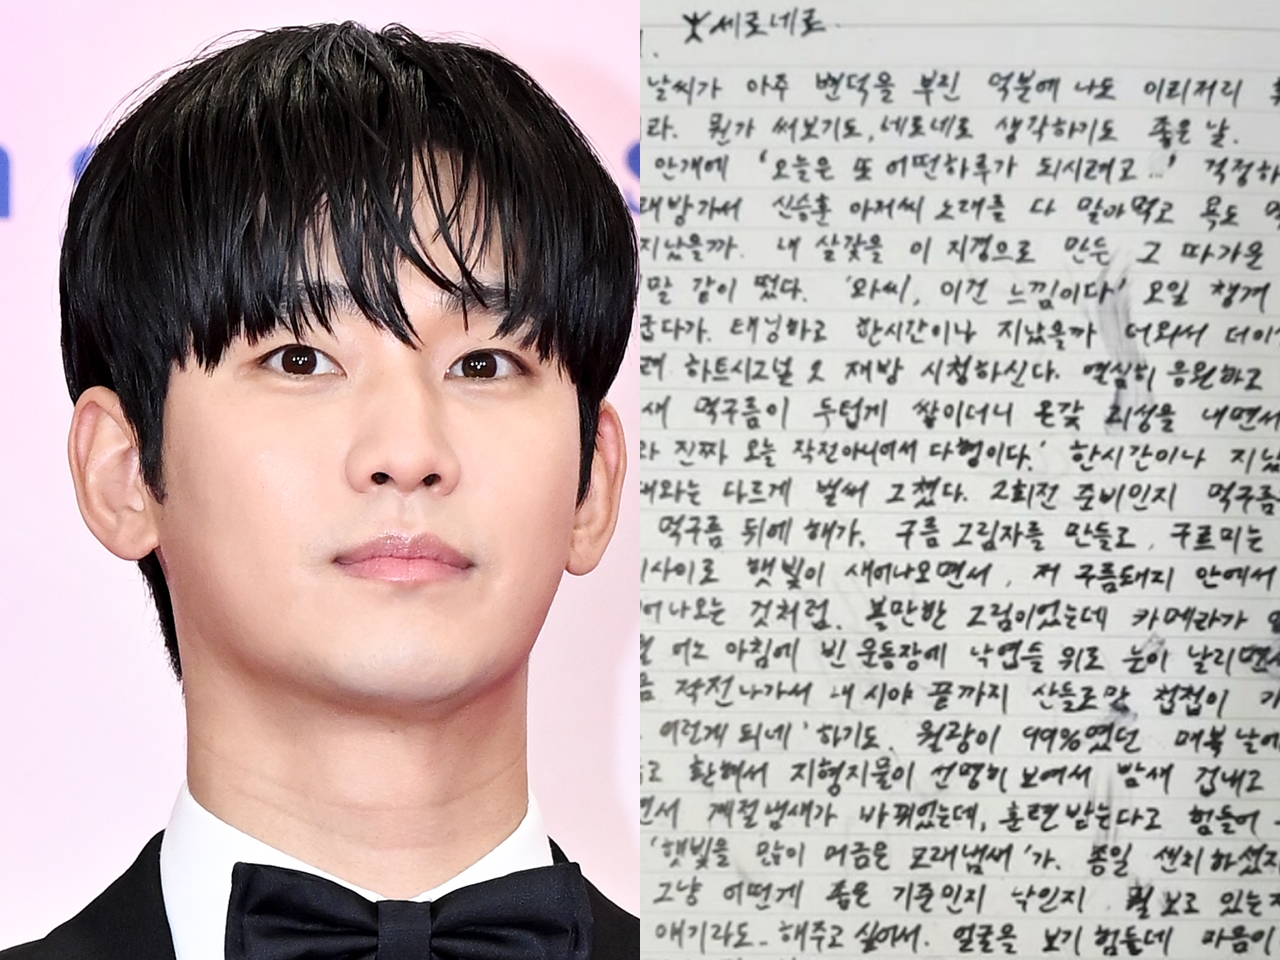 세로네로
날씨가 아주 변덕을 부린 덕분에 나도 이리저리
라. 뭔가 써보기도, 네로네로 생각하기도 좋은 날.
안개에 '오늘은 또 어떤하루가 되시려고...' 걱정하
래방가서 신승훈 아저씨 노래를 다 말아먹고 목도
지났을까. 내 살갗을 이 지경으로 만든 그 따가운
말 같이 떴다. '와씨, 이건 느낌이다' 오일 챙겨
운다가. 태닝하고 한시간이나 지났을까 더와서
려 하트시그널 2 재방 시청하신다. 열심히 응원하고
새 먹구름이 두텁게 쌓이더니 온갖 괴성을 내면서
와 진짜 오늘 작전아니어서 다행이다.' 한시간이나 지났
와는 다르게 벌써 그쳤다. 2회전 준비인지 먹구름
먹구름 뒤에 해가. 구름 그림자를 만들고, 구르미는
사이로 햇빛이 새어나오면서, 저 구름돼지 안에서
어나오는 것처럼. 볼만한 그림이었는데 카메라가
어느 아침에 빈 운동장에 낙엽들 위로 눈이 날리면서
작전나가서 내 시야 끝까지 산들로만 첩첩이
이렇게 되네' 하기도. 월광이 99%였던 매복날에
고 환해서 지형지물이 선명히 보여서 밤새 겁내고
면서 계절냄새가 바뀌었는데, 훈련받는다고 힘들어
'햇빛을 많이 머금은 모래냄새'가. 종일 센치하셨지
그냥 어떤게 좋은 기준인지 낙인지 뭘 보고 있는지
얘기라도.. 해주고 싶어서. 얼굴을 보기 힘든데 마음이